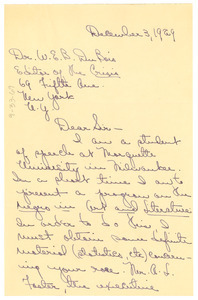 December 3, 1929
Dr. W. E. B. Du Bois
Editor of the Crisis
69 Fifth Ave.
New York
N.Y.
Dear Sir—
I am a student
of speech at Marquette
University in Milwaukee.
In a short time I am to
present a program on the
Negro in Art and Literature.
In order to do this, I
must obtain some definite
material (statistics, etc) concern-
ing your race. Mr. A. L.
Foster, the executive